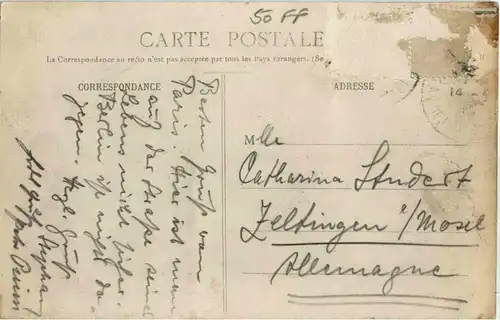 50 FF
CARTE POSTALE
La Correspondance au recto n'est pas acceptée par tous les Pays étrangers. (Se
CORRESPONDANCE
ADRESSE
Besten Gruß von
Paris. Hier ist man
auf der Straße seines
Lebens nicht sicher.
Berlin ist nichts da-
gegen. Herzl. Gruß
Mlle
Catharina Studert
Zeltingen a/Mosel
Allemagne
14